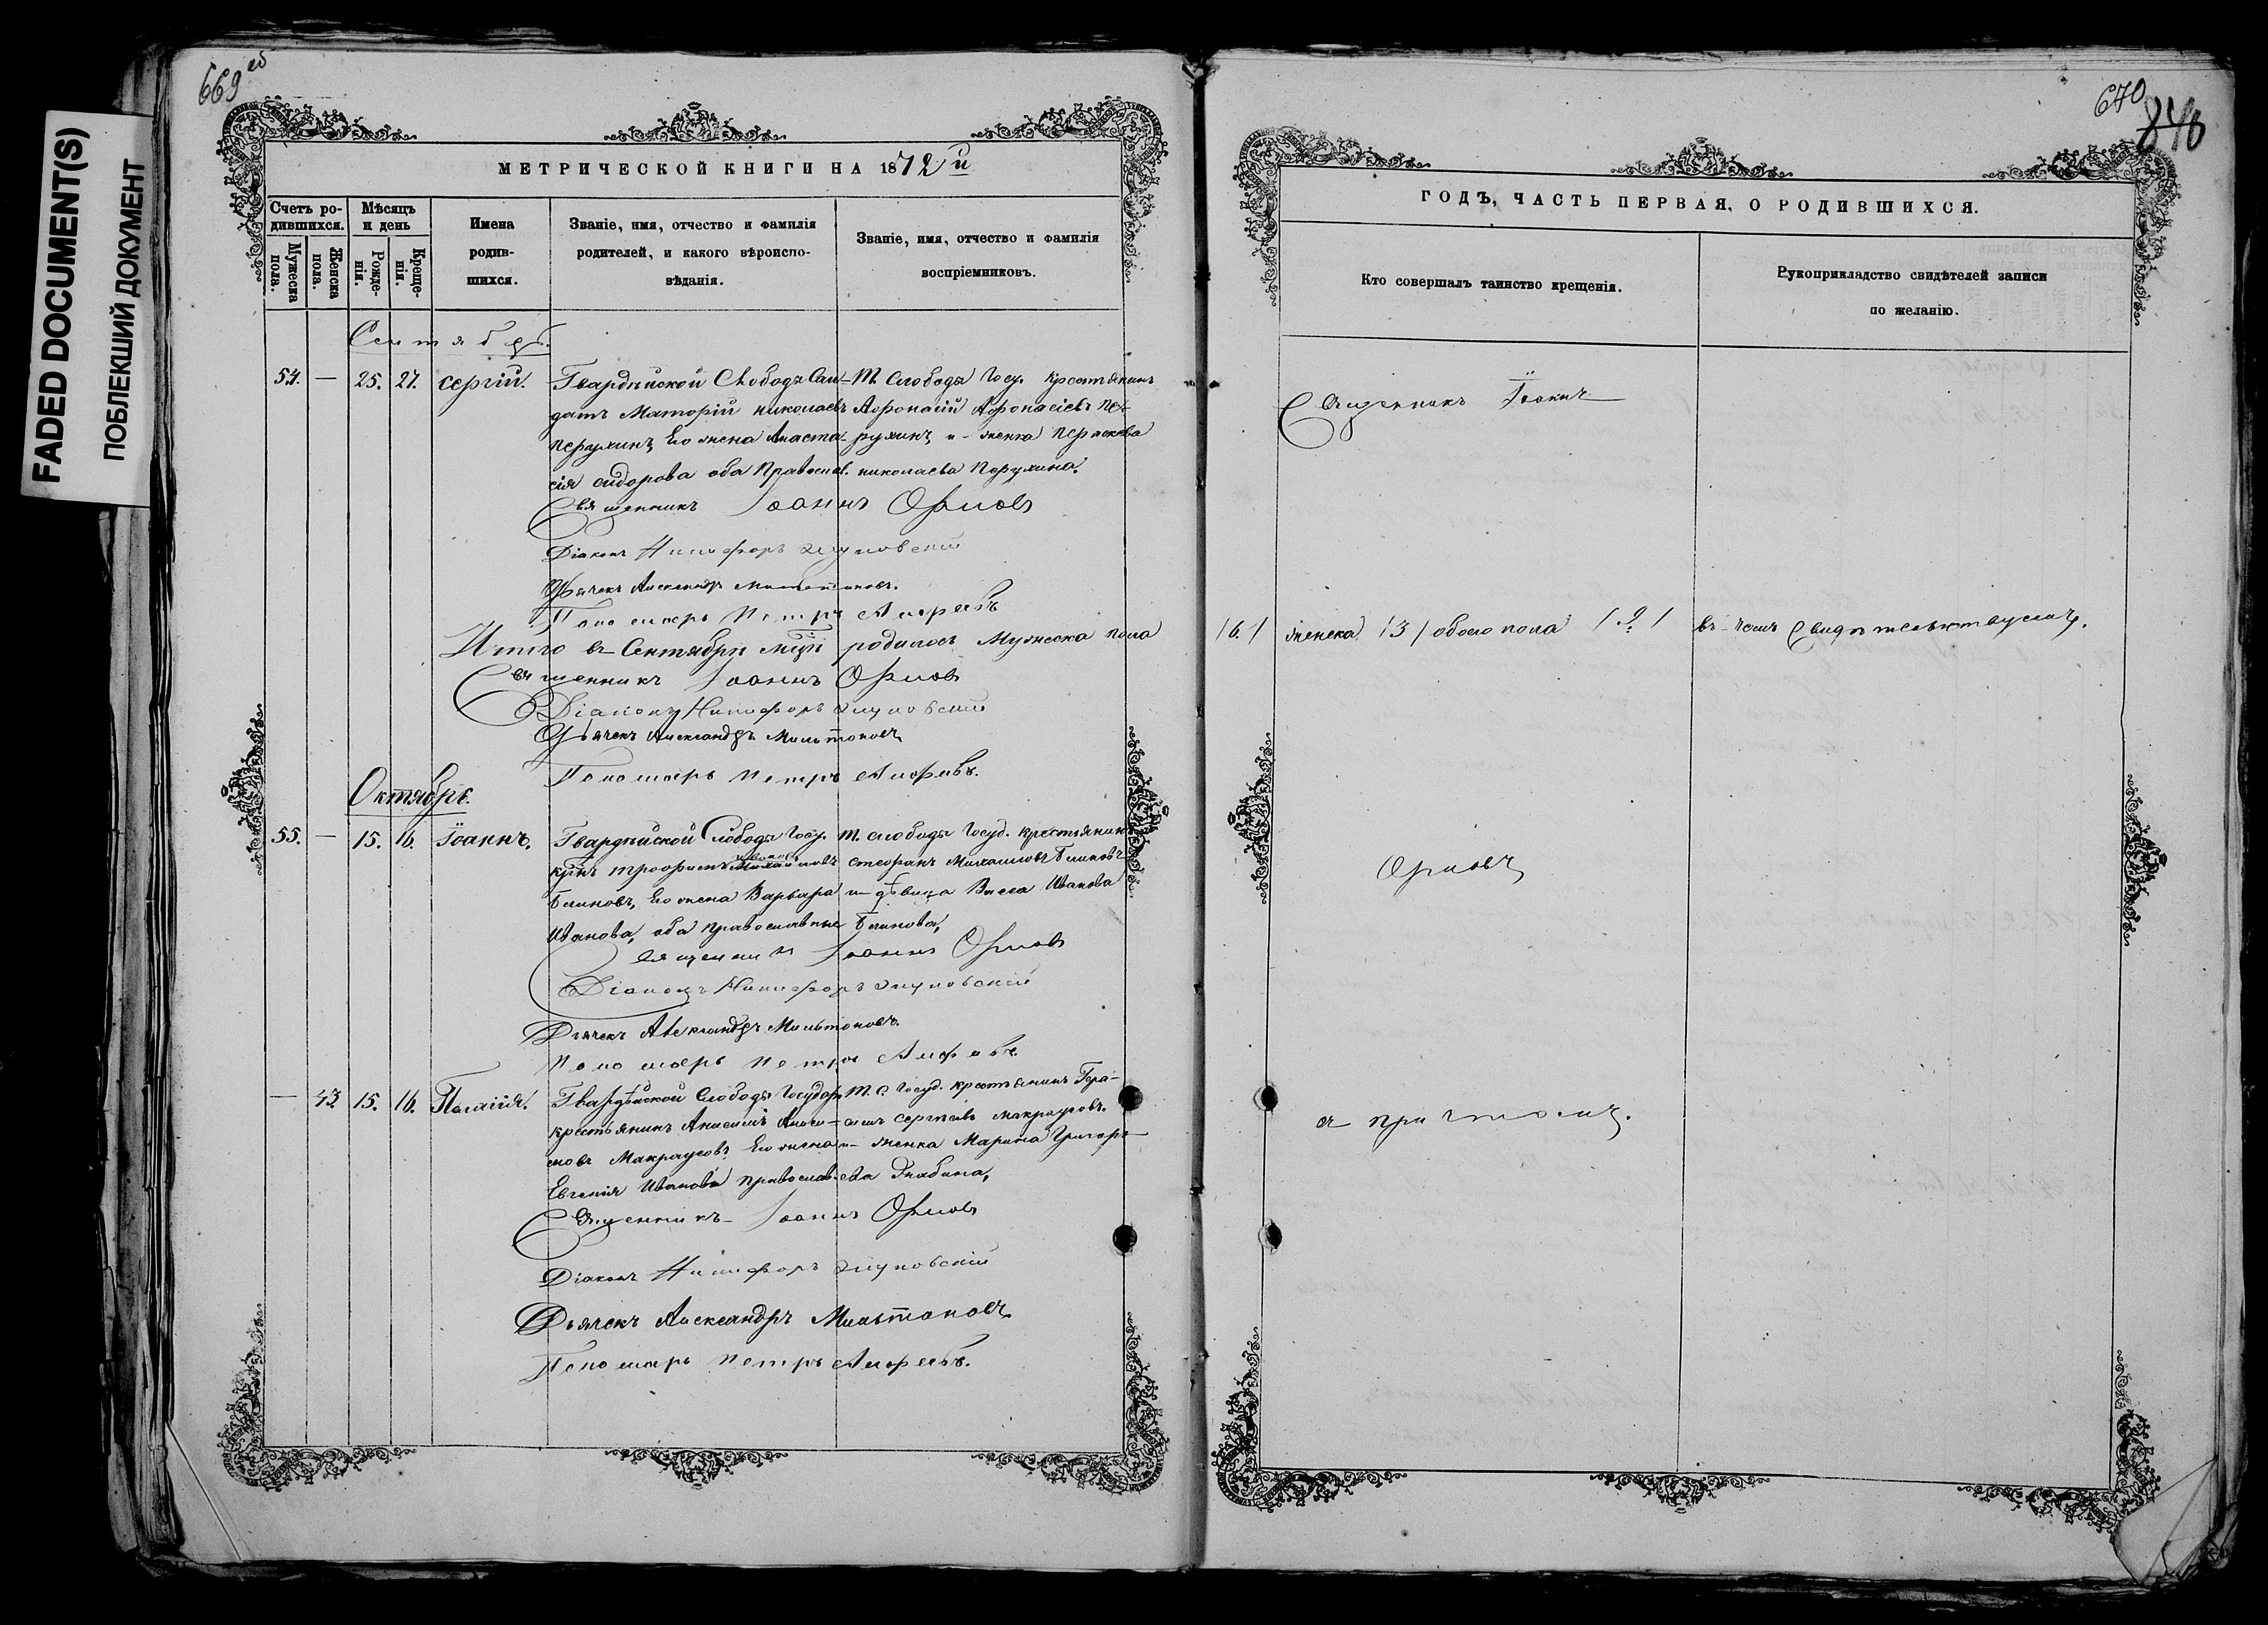 FADED DOCUMENT(S)
ПОБЛЕКШИЙ ДОКУМЕНТ
669 об
МЕТРИЧЕСКОЙ КНИГИ НА 1872й
Счетъ родившихся.
Мужеска пола.
Женска пола.
Мѣсяцъ и день
Рожденія.
Крещенія.
Имена родившихся.
Званіе, имя, отчество и фамилія
родителей, и какого вѣроисповѣданія.
Званіе, имя, отчество и фамилія
воспріемниковъ.
Сентябрь.
54. — 25. 27. Сергій.
Гвардѣйской Слободы Сал-
датъ Николаевъ
Его жена Анаста-
сія Сидорова оба Православ.
Т. Слободы Госу. Крестьянинъ
Афонасій Афонасіевъ Пе-
рухинъ и женка
Николаева
Священникъ Іоаннъ Орловъ
Діаконъ Никифоръ
Дьячекъ Александръ Мильтоновъ.
Пономарь Петръ Алфеевъ
Итого въ Сентябрѣ мцѣ родилось Мужеска пола
Священникъ Іоаннъ Орловъ
Діаконъ Никифоръ
Дьячекъ Александръ Мильтоновъ
Пономарь Петръ Алфеевъ.
Октябрь.
55. — 15. 16. Іоаннъ.
Гвардѣйской Слободы Госу.
крнъ Трофимъ
Блиновъ, Его жена Варвара
Иванова, оба православные
Т. слободы Госуд. крестьянинъ
Стефанъ Михаиловъ Блиновъ
и дѣвица Васса Иванова
Блинова,
Священникъ Іоаннъ Орловъ
Діаконъ Никифоръ
Дьячекъ Александръ Мильтоновъ.
Пономарь Петръ Алфеевъ
— 43. 15. 16. Пелагія.
Гвардѣйской Слободы Государ.
крестьянинъ Анисимъ Аниси-
мовъ Макроусовъ Его жена
Евгенія Иванова православ.
Т. С. Госуд. крестьянинъ Гера-
симъ Сергѣевъ Макроусовъ.
и женка Марина Григорь-
ева
Священникъ Іоаннъ Орловъ
Діаконъ Никифоръ
Дьячекъ Александръ Мильтоновъ
Пономарь Петръ Алфеевъ.
670
840
ГОДЪ, ЧАСТЬ ПЕРВАЯ, О РОДИВШИХСЯ.
Кто совершалъ таинство крещенія.
Рукоприкладство свидѣтелей записи
по желанію.
Священникъ Іоаннъ
/6./ женска /3/ обоего пола /9/ въ чемъ Свидѣтельствуемъ.
Орловъ
съ причтомъ.